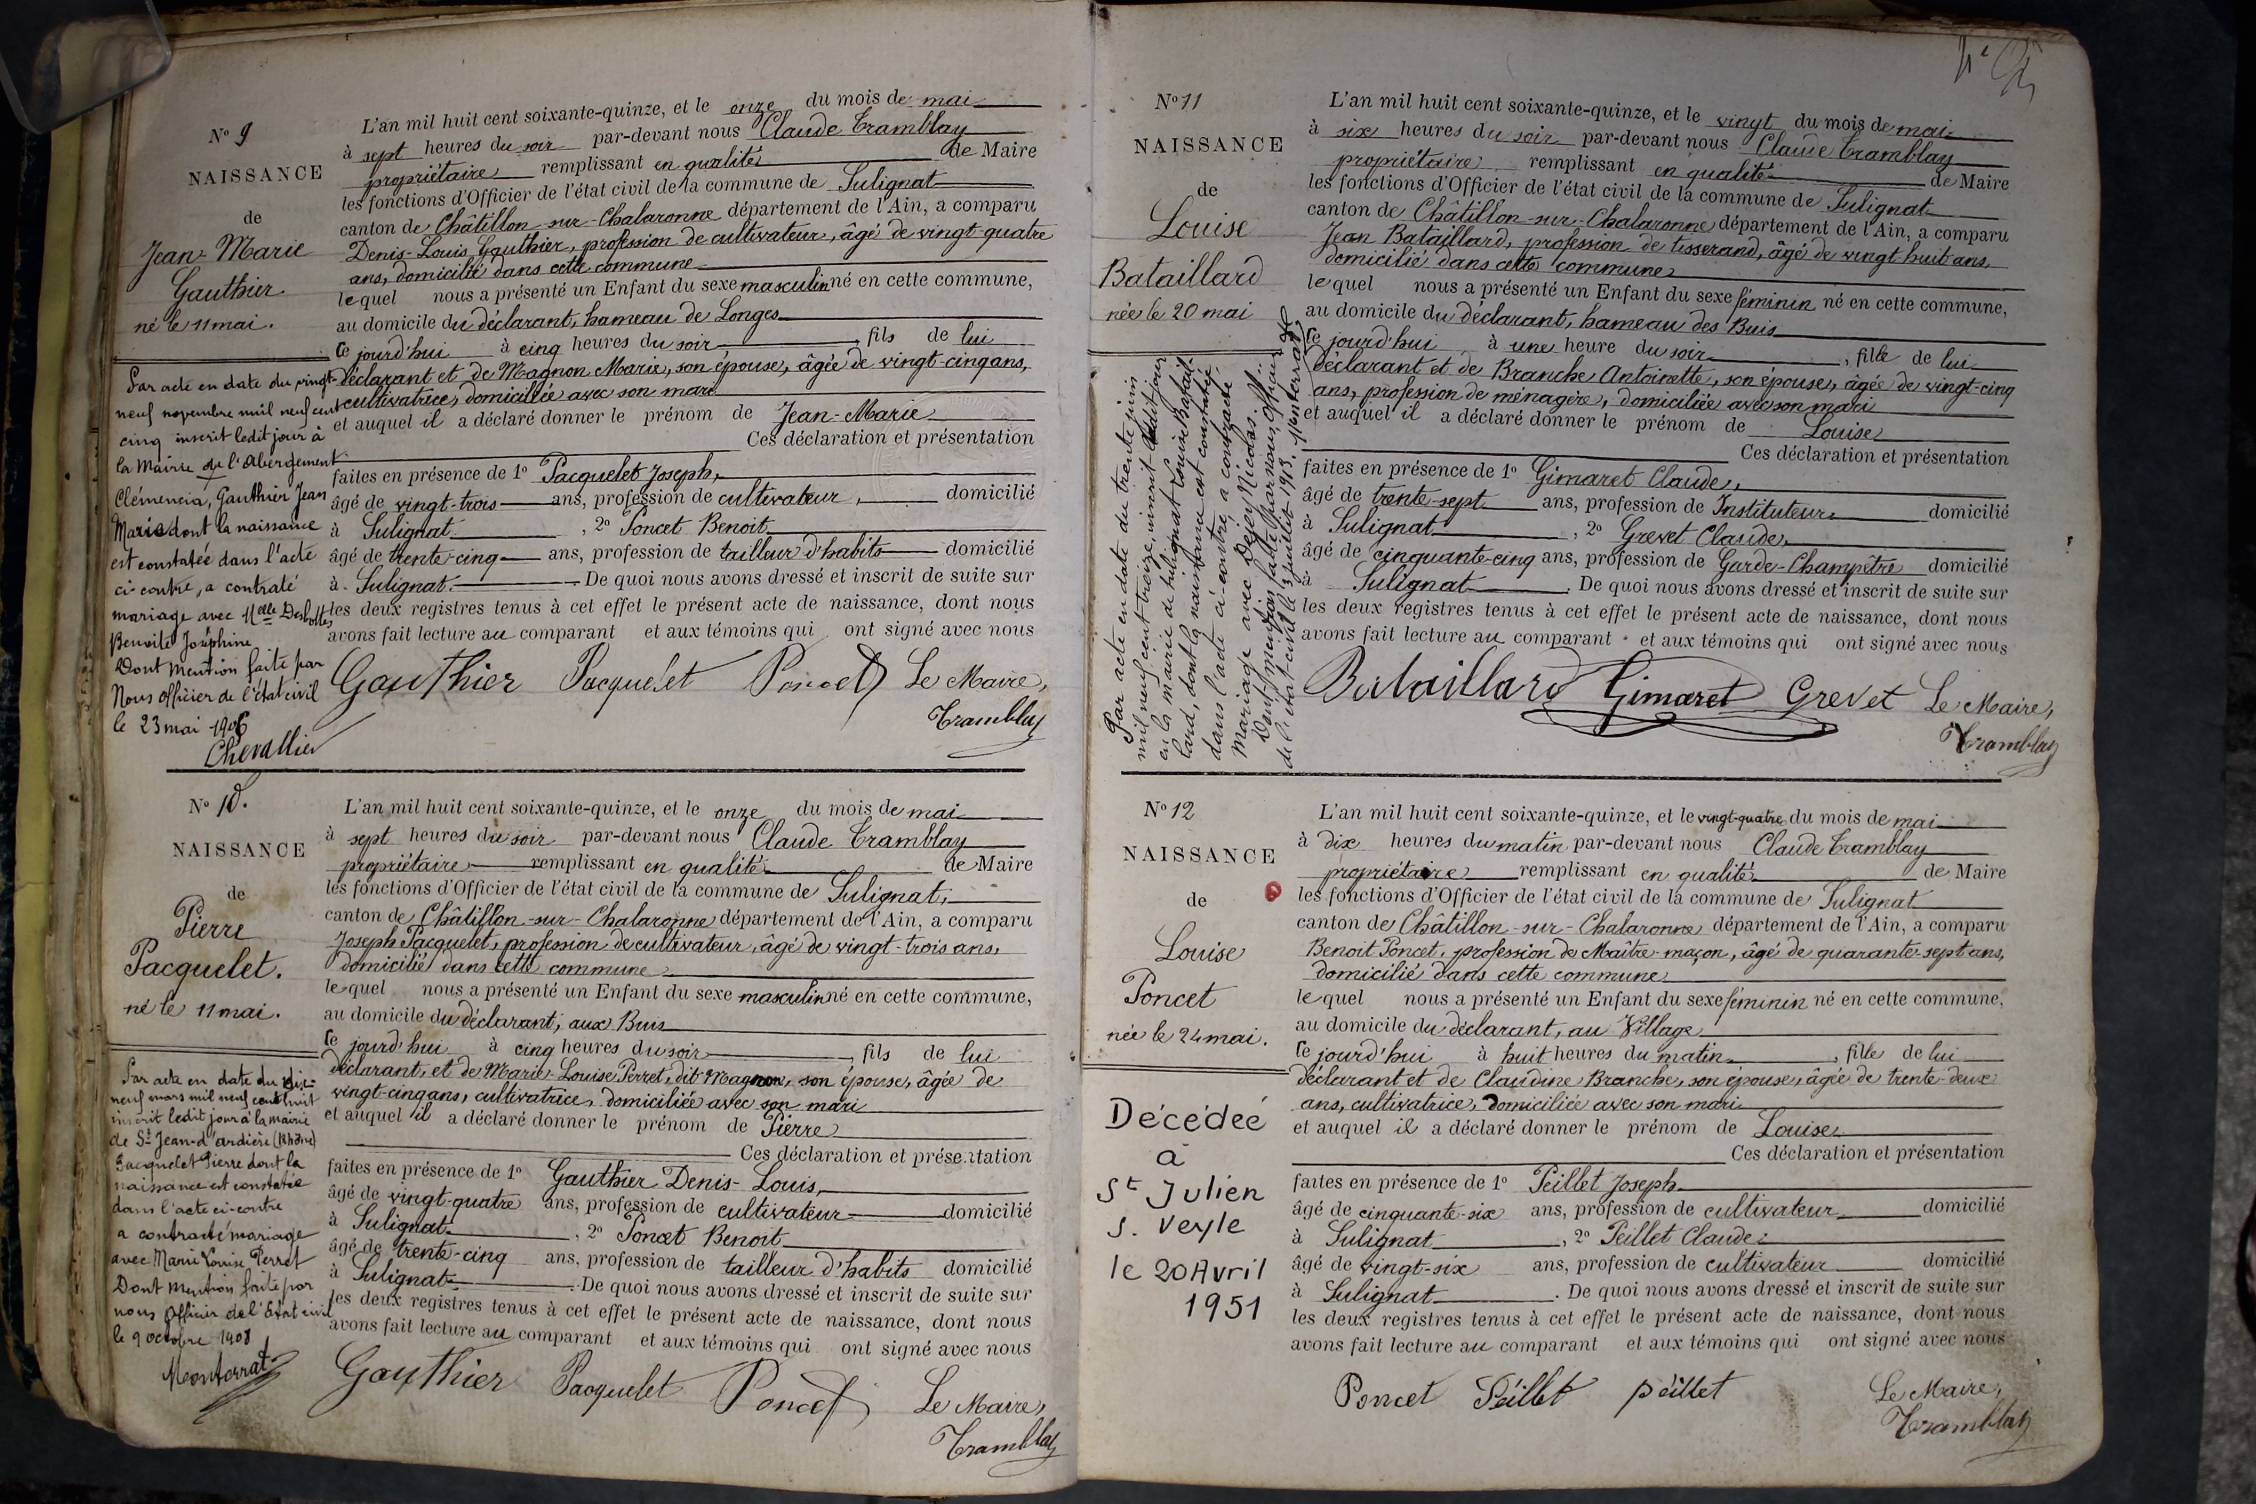 N° 9
NAISSANCE
de
Jean-Marie
Gauthier
né le 11 mai.
Par acte en date du vingt-
neuf novembre mil neuf cent
cinq inscrit ledit jour à
la Mairie de l'Abergement
Clémencia, Gauthier Jean
Marie dont la naissance
est constatée dans l'acte
ci-contre, a contracté
mariage avec Melle
Benoite Joséphine
Dont mention faite par
Nous officier de l'état civil
le 23 mai 1906
Chevallier
L'an mil huit cent soixante-quinze, et le onze du mois de mai
à sept heures du soir par-devant nous Claude Tramblay
propriétaire remplissant en qualité de Maire
les fonctions d'Officier de l'état civil de la commune de Sulignat
canton de Châtillon-sur-Chalaronne département de l'Ain, a comparu
Denis-Louis Gauthier, profession de cultivateur, âgé de vingt-quatre
ans, domicilié dans cette commune
lequel nous a présenté un Enfant du sexe masculin né en cette commune,
au domicile du déclarant, hameau de Longes
ce jourd'hui à cinq heures du soir, fils de lui
déclarant et de Magnon Marie, son épouse, âgée de vingt-cinq ans,
cultivatrice, domiciliée avec son mari
et auquel il a déclaré donner le prénom de Jean-Marie
Ces déclaration et présentation
faites en présence de 1° Pacquelet Joseph,
âgé de vingt-trois ans, profession de cultivateur, domicilié
à Sulignat, 2° Poncet Benoit
âgé de trente-cinq ans, profession de tailleur d'habits domicilié
à Sulignat. De quoi nous avons dressé et inscrit de suite sur
les deux registres tenus à cet effet le présent acte de naissance, dont nous
avons fait lecture au comparant et aux témoins qui ont signé avec nous
Gauthier Pacquelet Poncet Le Maire,
Tramblay
N° 10.
NAISSANCE
de
Pierre
Pacquelet.
né le 11 mai.
Par acte en date du dix-
neuf mars mil neuf cent huit
inscrit ledit jour à la mairie
de St Jean-d'ardière (Rhône)
Pacquelet Pierre dont la
naissance est constatée
dans l'acte ci-contre
a contracté mariage
avec Marie Louise Perret
Dont mention faite par
nous Officier de l'Etat civil
le 9 octobre 1908
Montorrat
L'an mil huit cent soixante-quinze, et le onze du mois de mai
à sept heures du soir par-devant nous Claude Tramblay
propriétaire remplissant en qualité de Maire
les fonctions d'Officier de l'état civil de la commune de Sulignat,
canton de Châtillon-sur-Chalaronne département de l'Ain, a comparu
Joseph Pacquelet, profession de cultivateur, âgé de vingt-trois ans,
domicilié dans cette commune
lequel nous a présenté un Enfant du sexe masculin né en cette commune,
au domicile du déclarant, aux Buis
ce jourd'hui à cinq heures du soir, fils de lui
déclarant, et de Marie-Louise Perret, dit Magnon, son épouse, âgée de
vingt-cinq ans, cultivatrice, domiciliée avec son mari
et auquel il a déclaré donner le prénom de Pierre
Ces déclaration et présentation
faites en présence de 1° Gauthier Denis-Louis,
âgé de vingt-quatre ans, profession de cultivateur domicilié
à Sulignat, 2° Poncet Benoit
âgé de trente-cinq ans, profession de tailleur d'habits domicilié
à Sulignat. De quoi nous avons dressé et inscrit de suite sur
les deux registres tenus à cet effet le présent acte de naissance, dont nous
avons fait lecture au comparant et aux témoins qui ont signé avec nous
Gauthier Pacquelet Poncet Le Maire,
Tramblay
N° 11
NAISSANCE
de
Louise
Bataillard
née le 20 mai
Par acte en date du trente juin
mil neuf cent treize, inscrit ledit jour
en la mairie de Sulignat Louise Batail-
lard, dont la naissance est constatée
dans l'acte ci-contre, a contracté
mariage avec Nicolas.
Dont mention faite par nous, Officier de
l'état civil le juillet 1913. Montorrat
L'an mil huit cent soixante-quinze, et le vingt du mois de mai
à six heures du soir par-devant nous Claude Tramblay
propriétaire remplissant en qualité de Maire
les fonctions d'Officier de l'état civil de la commune de Sulignat
canton de Châtillon-sur-Chalaronne département de l'Ain, a comparu
Jean Bataillard, profession de tisserand, âgé de vingt-huit ans,
domicilié dans cette commune
lequel nous a présenté un Enfant du sexe féminin né en cette commune,
au domicile du déclarant, hameau des Buis
ce jourd'hui à une heure du soir, fille de lui
déclarant et de Branche Antoinette, son épouse, âgée de vingt-cinq
ans, profession de ménagère, domiciliée avec son mari
et auquel il a déclaré donner le prénom de Louise
Ces déclaration et présentation
faites en présence de 1° Gimaret Claude,
âgé de trente-sept ans, profession de Instituteur domicilié
à Sulignat, 2° Grevet Claude,
âgé de cinquante-cinq ans, profession de Garde-Champêtre domicilié
à Sulignat. De quoi nous avons dressé et inscrit de suite sur
les deux registres tenus à cet effet le présent acte de naissance, dont nous
avons fait lecture au comparant et aux témoins qui ont signé avec nous
Bataillard Gimaret Grevet Le Maire,
Tramblay
N° 12
NAISSANCE
de
Louise
Poncet
née le 24 mai.
Décédeé
à
St Julien
s. Veyle
le 20 Avril
1951
L'an mil huit cent soixante-quinze, et le vingt-quatre du mois de mai
à dix heures du matin par-devant nous Claude Tramblay
propriétaire remplissant en qualité de Maire
les fonctions d'Officier de l'état civil de la commune de Sulignat
canton de Châtillon-sur-Chalaronne département de l'Ain, a comparu
Benoit Poncet, profession de Maître-maçon, âgé de quarante-sept ans,
domicilié dans cette commune
lequel nous a présenté un Enfant du sexe féminin né en cette commune,
au domicile du déclarant, au Village
ce jourd'hui à huit heures du matin, fille de lui
déclarant et de Claudine Branche, son épouse, âgée de trente-deux
ans, cultivatrice, domiciliée avec son mari
et auquel il a déclaré donner le prénom de Louise
Ces déclaration et présentation
faites en présence de 1° Peillet Joseph
âgé de cinquante-six ans, profession de cultivateur domicilié
à Sulignat, 2° Peillet Claude
âgé de vingt-six ans, profession de cultivateur domicilié
à Sulignat. De quoi nous avons dressé et inscrit de suite sur
les deux registres tenus à cet effet le présent acte de naissance, dont nous
avons fait lecture au comparant et aux témoins qui ont signé avec nous
Poncet Péillet péillet Le Maire,
Tramblay